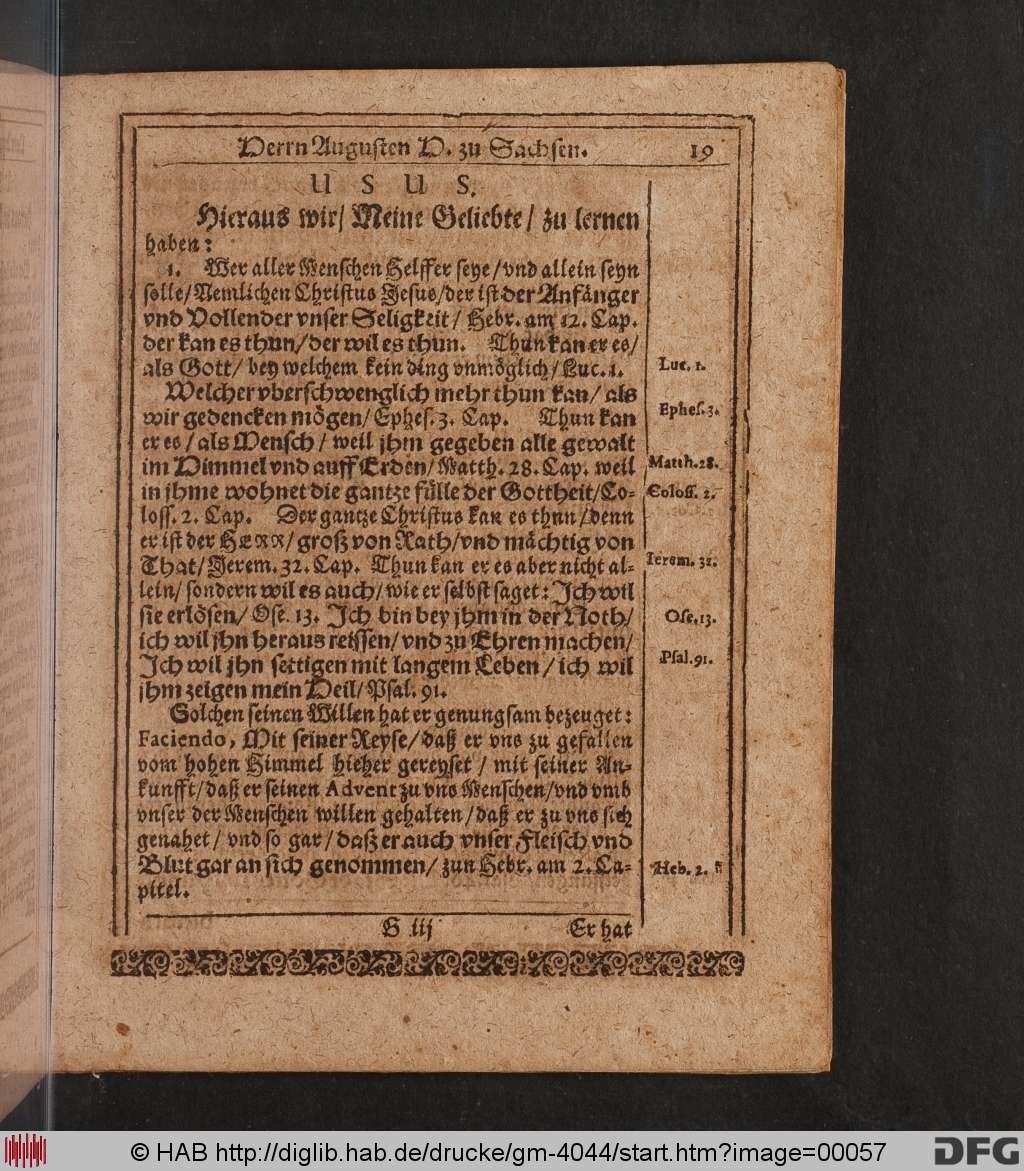 Herrn Augusten H. zu Sachsen. 19
USUS.
Hieraus wir/ Meine Geliebte/ zu lernen
haben:
1. Wer aller Menschen Helffer seye/vnd allein seyn
solle/Nemlichen Christus Jesus/der ist der Anfänger
vnd Vollender vnser Seligkeit/ Hebr. am 12. Cap.
der kan es thun/der wil es thun. Thun kan er es/
als Gott/ bey welchem kein ding vnmöglich/Luc. 1.
Luc. 1.
Welcher vberschwenglich mehr thun kan/ als
wir gedencken mögen/Ephes. 3. Cap. Thun kan
Ephes. 3.
er es/als Mensch/ weil jhm gegeben alle gewalt
im Himmel vnd auff Erden/Matth. 28. Cap. weil
Matth. 28.
in jhme wohnet die gantze fülle der Gottheit/Co-
Coloss. 2.
loss. 2. Cap. Der gantze Christus kan es thun/denn
er ist der HERR/groß von Rath/vnd mächtig von
That/Jerem. 32. Cap. Thun kan er es aber nicht al-
Ierem. 32.
lein/sondern wil es auch/wie er selbst saget: Ich wil
sie erlösen/ Ose. 13. Ich bin bey jhm in der Noth/
Ose. 13.
ich wil jhn heraus reissen/vnd zu Ehren machen/
Ich wil jhn settigen mit langem Leben/ich wil
Psal. 91.
jhm zeigen mein Heil/Psal. 91.
Solchen seinen Willen hat er genungsam bezeuget:
Faciendo, Mit seiner Reyse/daß er vns zu gefallen
vom hohen Himmel hieher gereyset/ mit seiner An-
kunfft/daß er seinen Advent zu vns Menschen/vnd vmb
vnser der Menschen willen gehalten/daß er zu vns sich
genahet/vnd so gar/daß er auch vnser Fleisch vnd
Blut gar an sich genommen/ zun Hebr. am 2. Ca-
Heb. 2.
pitel.
G iij Er hat
© HAB http://diglib.hab.de/drucke/gm-4044/start.htm?image=00057
DFG